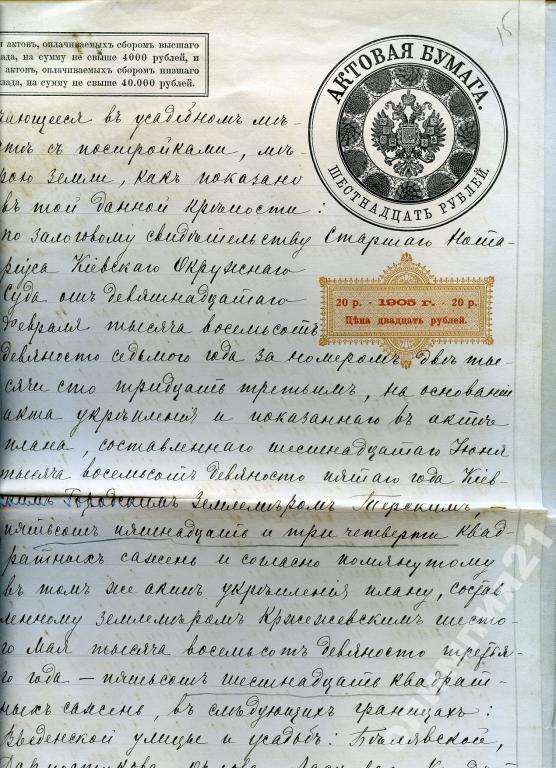 15
и актовъ, оплачиваемыхъ сборомъ высшаго
лада, на сумму не свыше 4000 рублей, и
актовъ, оплачиваемыхъ сборомъ низшаго
лада, на сумму не свыше 40.000 рублей.
АКТОВАЯ БУМАГА.
ШЕСТНАДЦАТЬ РУБЛЕЙ.
чающееся въ усадебномъ мѣ-
стѣ съ постройками, мѣ-
рою земли, какъ показано
въ той данной крѣпости:
по залоговому свидѣтельству Старшаго Нота-
ріуса Кіевскаго Окружнаго
Суда отъ девятнадцатаго
Февраля тысяча восемьсотъ
20 р. - 1905 г. - 20 р.
Цѣна двадцать рублей.
девяносто седьмого года за номеромъ двѣ ты-
сячи сто тридцать третьимъ, на основаніи
акта укрѣпленія и показаннаго въ актѣ
плана, составленнаго шестнадцатаго Іюня
тысяча восемьсотъ девяносто пятаго года Кіев-
скимъ Городскимъ Землемѣромъ
пятьсотъ пятнадцать и три четверти квад-
ратныхъ саженъ и согласно помянутому
въ томъ же актѣ укрѣпленія плану, состав-
ленному землемѣромъ Кржежевскимъ шесто-
го Мая тысяча восемьсотъ девяносто третья-
го года — пятьсотъ шестнадцать квадрат-
ныхъ саженъ, въ слѣдующихъ границахъ:
Введенской улицы и усадьбъ: Бѣлявской,